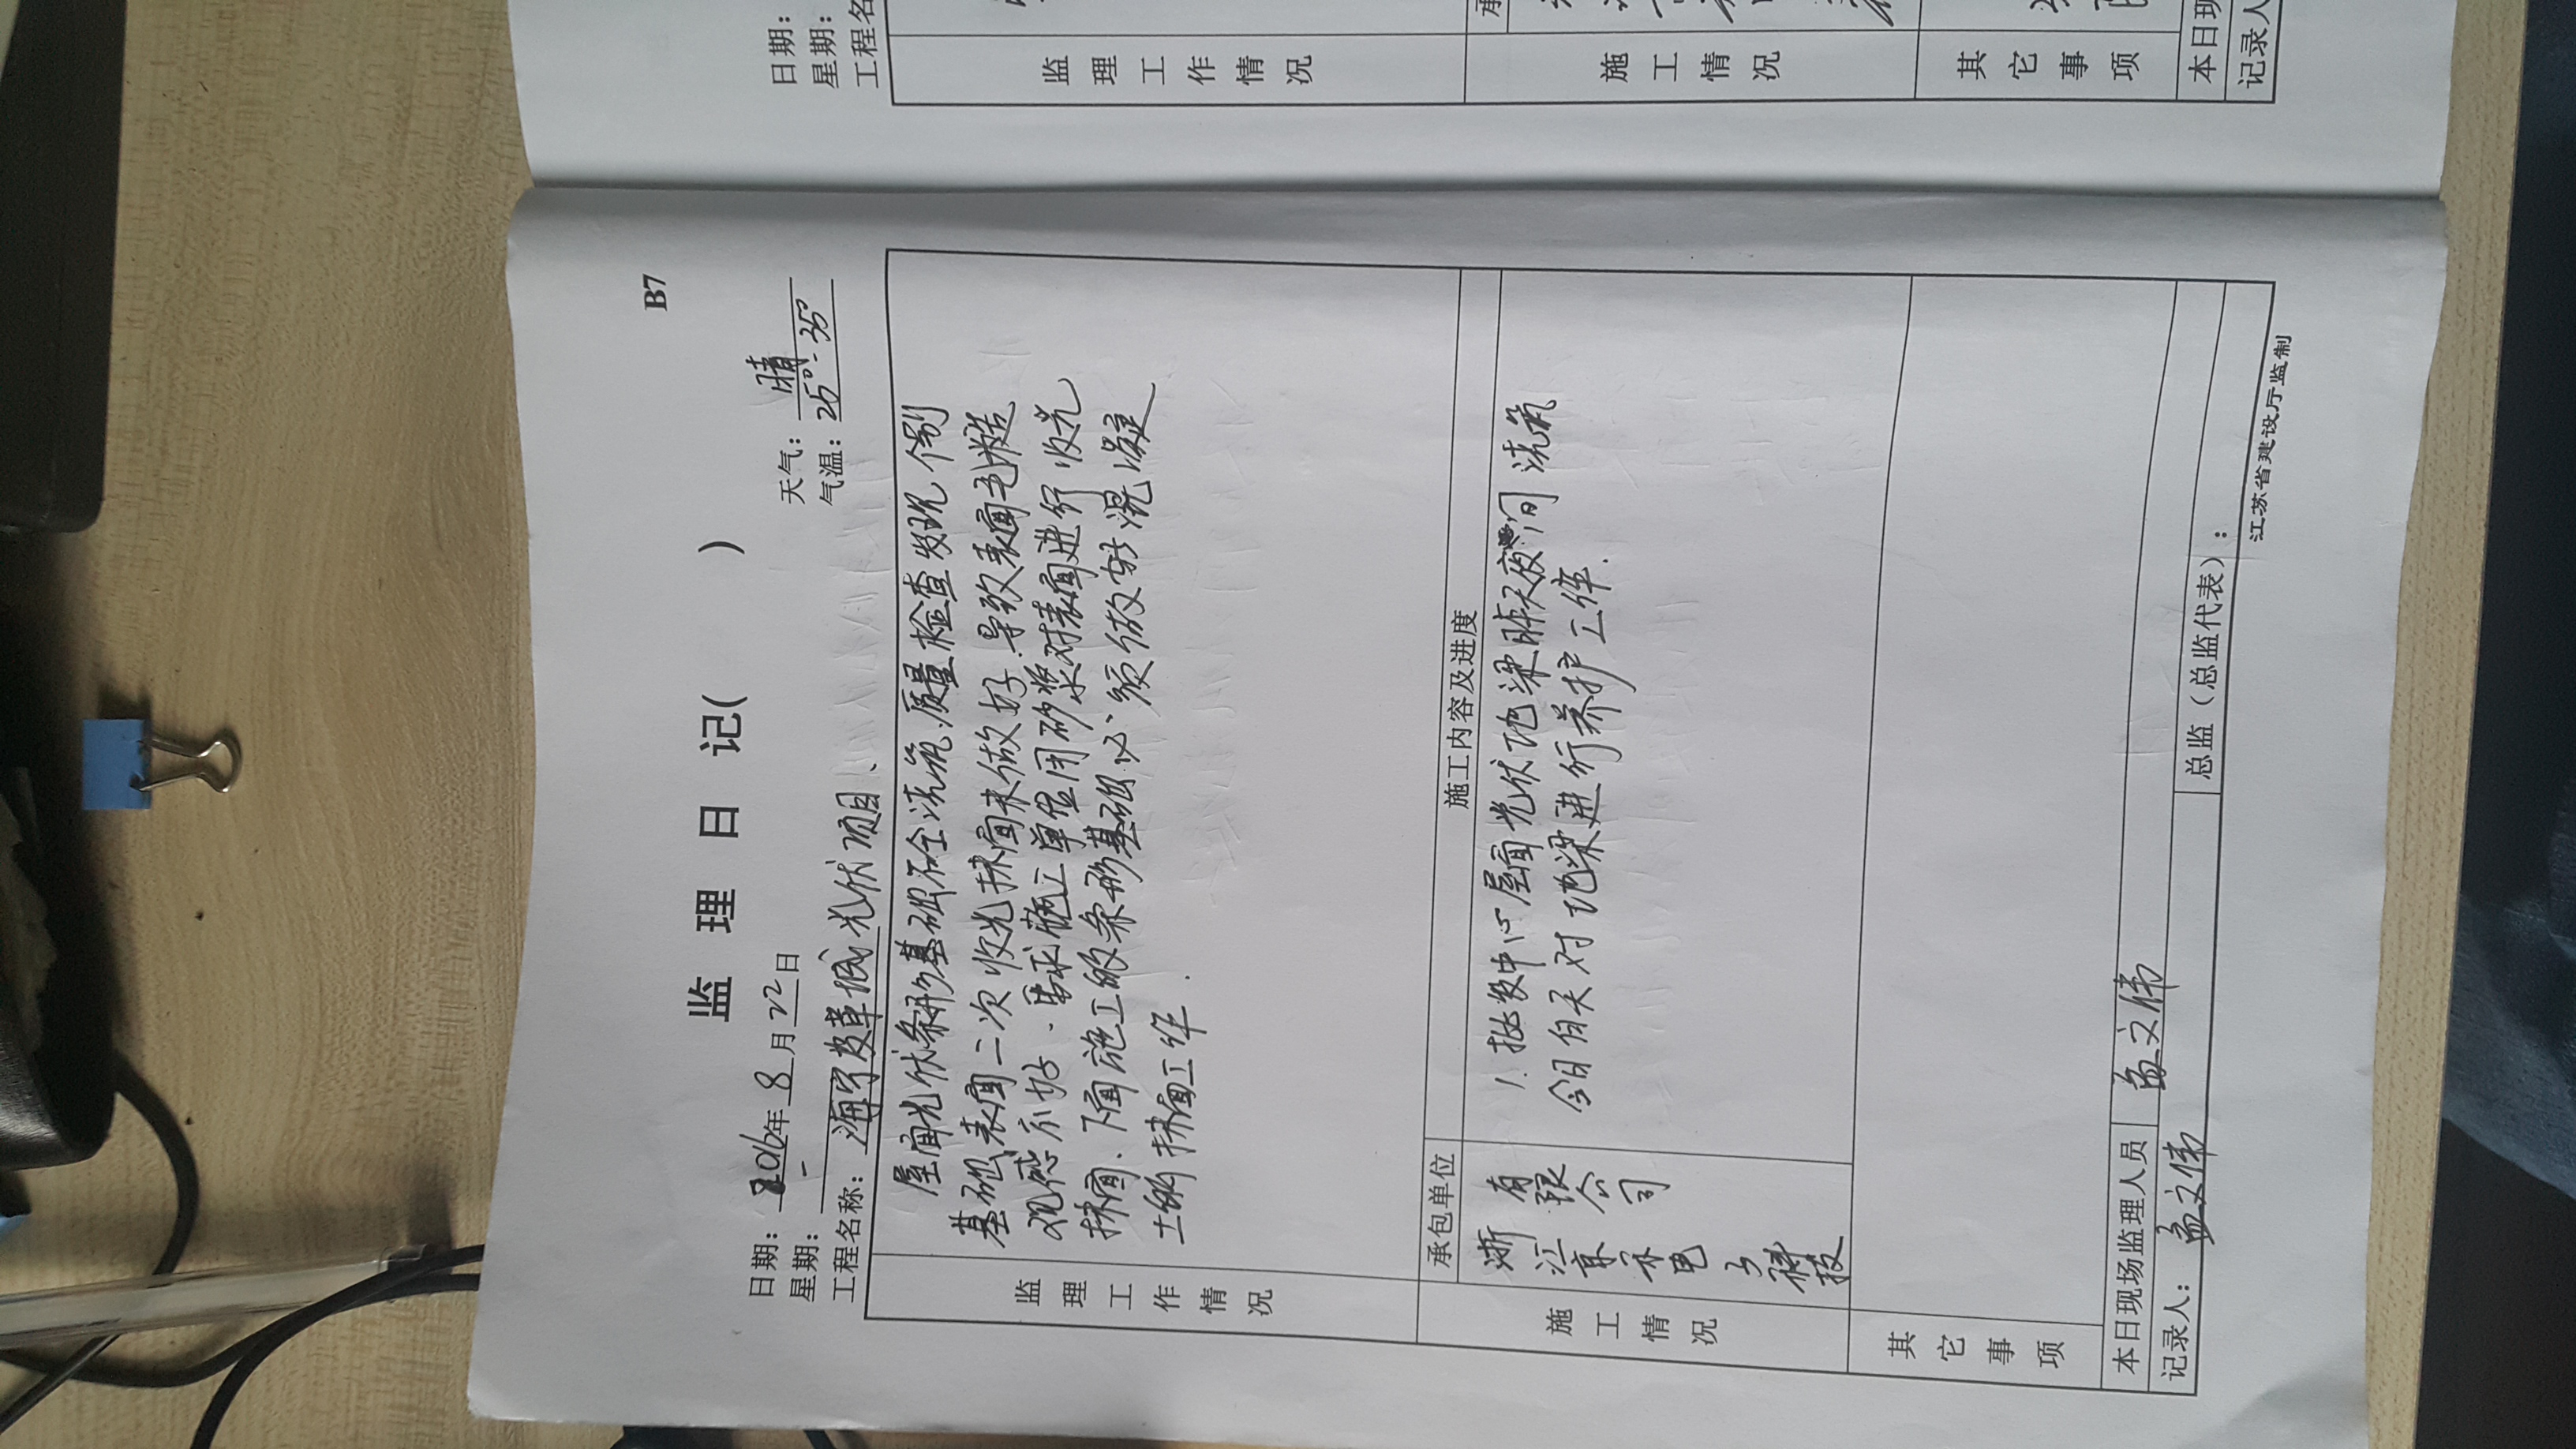 B7
监 理 日 记( )
日期: 2016年 8 月 22 日 天气: 晴
星期: 一 气温: 25°-35°
工程名称: 海宁皮革城光伏项目、
监理工作情况
屋面光伏条形基础砼浇筑质量检查发现个别
基础表面二次收光抹面未做好.导致表面毛糙
观感不好.要求施工单位用砂浆对表面进行收光
抹面、下面施工的条形基础必须做好混凝
土的抹面工作.
施工情况
承包单位 施工内容及进度
浙江京禾电子科技有限公司
1. 批发中心屋面光伏地梁昨天夜间浇筑
今日白天对地梁进行养护工作.
其它事项
本日现场监理人员 孟文伟
记录人: 孟文伟 总监(总监代表):
江苏省建设厅监制
日期:
星期:
工程名
监理工作情况
施工情况
承
其它事项
本日现
记录人